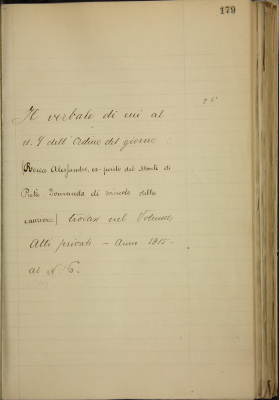 179
26
Il verbale di cui al
N. 9 dell'Ordine del giorno
(Rocca Alessandro, ex-perito del Monte di
Pietà Domanda di svincolo della
cauzione) trovasi nel Volume
Atti privati - Anno 1915 -
al N. 6.